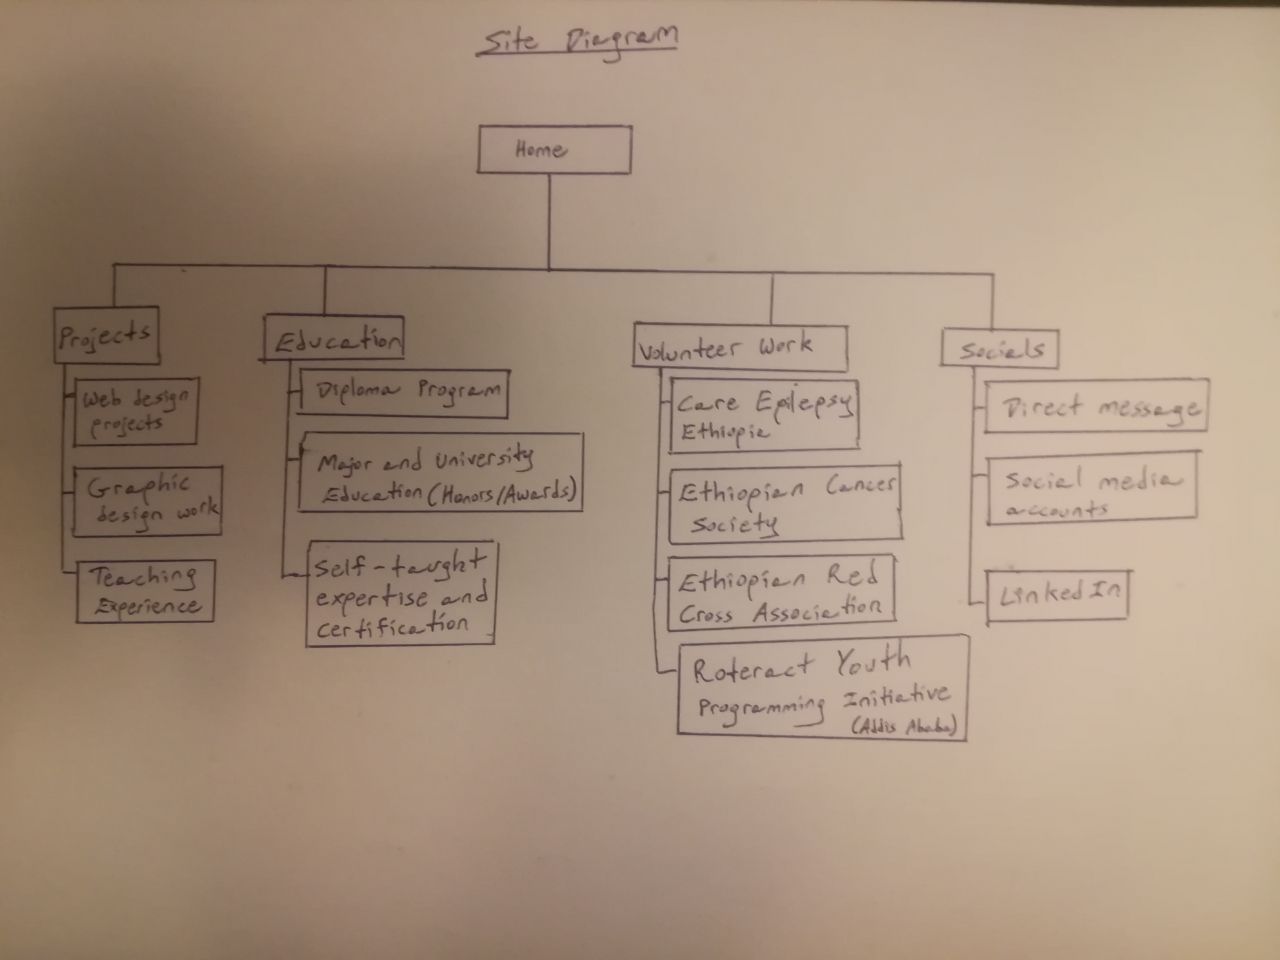 Site Diagram
Home
Projects
Web design
projects
Graphic
design work
Teaching
Experience
Education
Diploma Program
Major and University
Education (Honors/Awards)
Self-taught
expertise and
certification
Volunteer Work
Care Epilepsy
Ethiopia
Ethiopian Cancer
Society
Ethiopian Red
Cross Association
Roteract Youth
Programming Initiative
(Addis Ababa)
Socials
Direct message
Social media
accounts
LinkedIn